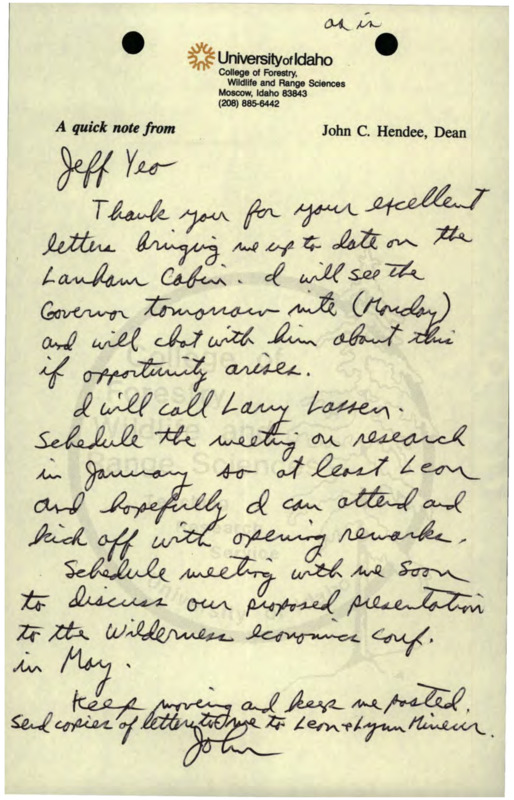 as in
University of Idaho
College of Forestry,
Wildlife and Range Sciences
Moscow, Idaho 83843
(208) 885-6442
A quick note from John C. Hendee, Dean
Jeff Yeo
Thank you for your excellent
letters bringing me up to date on the
Lanham Cabin. I will see the
Governor tomorrow nite (Monday)
and will chat with him about this
if opportunity arises.
I will call Larry Lassen.
Schedule the meeting on research
in January so at least Leon
and hopefully I can attend and
kick off with opening remarks.
Schedule meeting with me soon
to discuss our proposed presentation
to the Wilderness economics conf.
in May.
Keep moving and keep me posted.
Send copies of letters to me to Leon & Lynn Mineur.
John